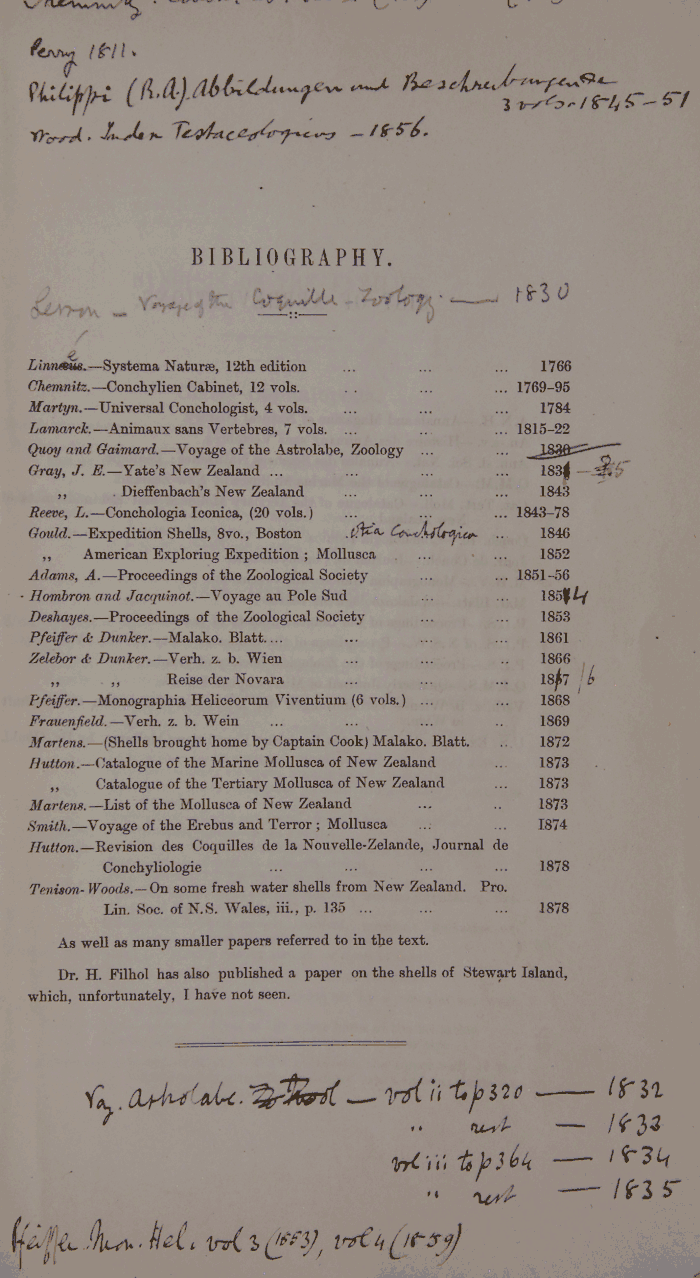 Perry 1811.
Philippi (R.A.) Abbildungen und Beschreibungen
3 vols. 1845-51
Wood. Index Testaceologicus - 1856.
BIBLIOGRAPHY.
Lesson - Voyage of the Coquille - Zoology. — 1830
Linnæus.—Systema Naturæ, 12th edition ... ... ... 1766
Chemnitz.—Conchylien Cabinet, 12 vols. .. ... ... 1769-95
Martyn.—Universal Conchologist, 4 vols. ... ... ... 1784
Lamarck.—Animaux sans Vertebres, 7 vols. ... ... ... 1815-22
Quoy and Gaimard.—Voyage of the Astrolabe, Zoology ... ... 1830
Gray, J. E.—Yate's New Zealand ... ... ... 183 — 35
,, Dieffenbach's New Zealand ... ... ... 1843
Reeve, L.—Conchologia Iconica, (20 vols.) ... ... ... 1843-78
Gould.—Expedition Shells, 8vo., Boston Otia Conchologica .. 1846
,, American Exploring Expedition ; Mollusca ... ... 1852
Adams, A.—Proceedings of the Zoological Society ... ... 1851-56
Hombron and Jacquinot.—Voyage au Pole Sud ... ... 1854
Deshayes.—Proceedings of the Zoological Society ... ... 1853
Pfeiffer & Dunker.—Malako. Blatt.... ... ... ... 1861
Zelebor & Dunker.—Verh. z. b. Wien ... ... .. 1866
,, ,, Reise der Novara ... ... .. 1867 /6
Pfeiffer.—Monographia Heliceorum Viventium (6 vols.) ... ... 1868
Frauenfield.—Verh. z. b. Wein ... ... ... .. 1869
Martens.—(Shells brought home by Captain Cook) Malako. Blatt. .. 1872
Hutton.—Catalogue of the Marine Mollusca of New Zealand ... 1873
,, Catalogue of the Tertiary Mollusca of New Zealand ... 1873
Martens.—List of the Mollusca of New Zealand ... .. 1873
Smith.—Voyage of the Erebus and Terror ; Mollusca ... ... 1874
Hutton.—Revision des Coquilles de la Nouvelle-Zelande, Journal de
Conchyliologie ... ... ... ... 1878
Tenison-Woods.—On some fresh water shells from New Zealand. Pro.
Lin. Soc. of N.S. Wales, iii., p. 135 ... ... ... 1878
As well as many smaller papers referred to in the text.
Dr. H. Filhol has also published a paper on the shells of Stewart Island,
which, unfortunately, I have not seen.
Voy. Astrolabe. Zool — vol ii to p 320 — 1832
" rest — 1833
vol iii to p 364 — 1834
" rest — 1835
Pfeiffer Mon. Hel. vol 3 (1853), vol 4 (1859)